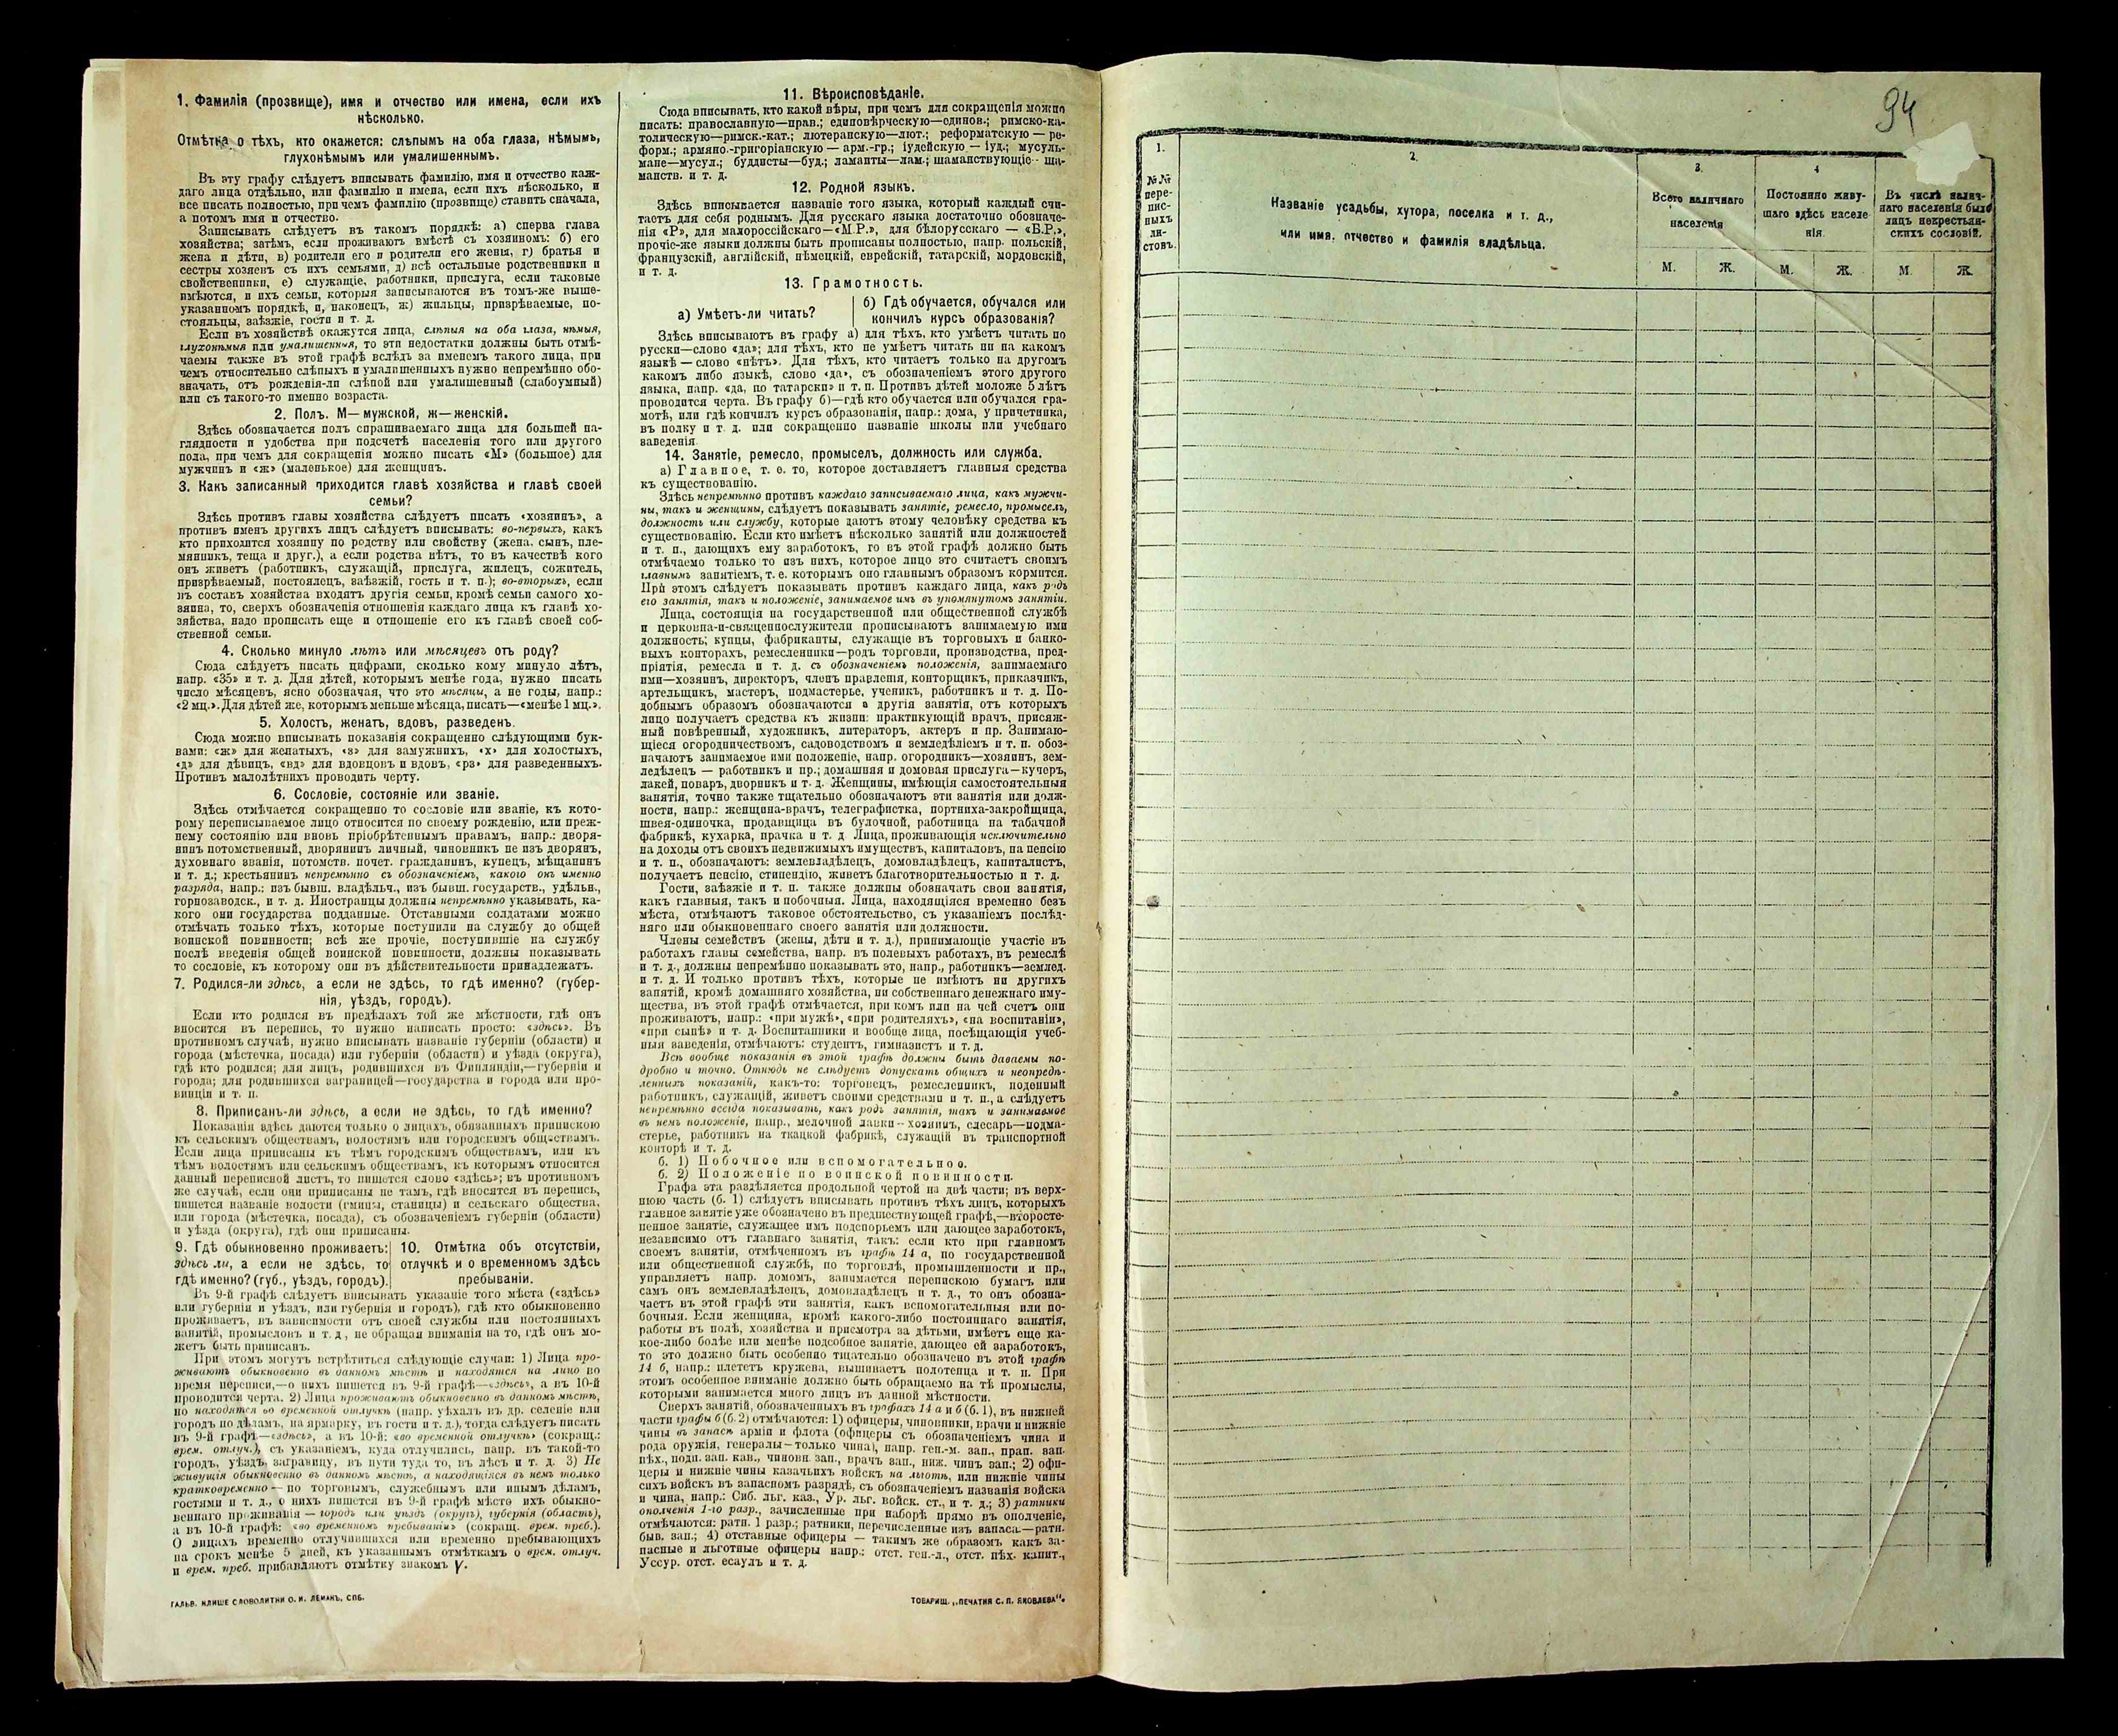 1. Фамилія (прозвище), имя и отчество или имена, если ихъ
нѣсколько.
Отмѣтка о тѣхъ, кто окажется: слѣпымъ на оба глаза, нѣмымъ,
глухонѣмымъ или умалишеннымъ.
Въ эту графу слѣдуетъ вписывать фамилію, имя и отчество каж-
даго лица отдѣльно, или фамилію и имена, если ихъ нѣсколько, и
все писать полностью, при чемъ фамилію (прозвище) ставить сначала,
а потомъ имя и отчество.
Записывать слѣдуетъ въ такомъ порядкѣ: а) сперва глава
хозяйства; затѣмъ, если проживаютъ вмѣстѣ съ хозяиномъ: б) его
жена и дѣти, в) родители его и родители его жены, г) братья и
сестры хозяевъ съ ихъ семьями, д) всѣ остальные родственники и
свойственники, е) служащіе, работники, прислуга, если таковые
имѣются, и ихъ семьи, которыя записываются въ томъ-же выше-
указанномъ порядкѣ, и, наконецъ, ж) жильцы, призрѣваемые, по-
стояльцы, заѣзжіе, гости и т. д.
Если въ хозяйствѣ окажутся лица, слѣпыя на оба глаза, нѣмыя,
глухонѣмыя или умалишенныя, то эти недостатки должны быть отмѣ-
чаемы также въ этой графѣ вслѣдъ за именемъ такого лица, при
чемъ относительно слѣпыхъ и умалишенныхъ нужно непремѣнно обо-
значать, отъ рожденія-ли слѣпой или умалишенный (слабоумный)
или съ такого-то именно возраста.
2. Полъ. М—мужской, ж—женскій.
Здѣсь обозначается полъ спрашиваемаго лица для большей на-
глядности и удобства при подсчетѣ населенія того или другого
пола, при чемъ для сокращенія можно писать «М» (большое) для
мужчинъ и «ж» (маленькое) для женщинъ.
3. Какъ записанный приходится главѣ хозяйства и главѣ своей
семьи?
Здѣсь противъ главы хозяйства слѣдуетъ писать «хозяинъ», а
противъ именъ другихъ лицъ слѣдуетъ вписывать: во-первыхъ, какъ
кто приходится хозяину по родству или свойству (жена, сынъ, пле-
мянникъ, теща и друг.), а если родства нѣтъ, то въ качествѣ кого
онъ живетъ (работникъ, служащій, прислуга, жилецъ, сожитель,
призрѣваемый, постоялецъ, заѣзжій, гость и т. п.); во-вторыхъ, если
въ составъ хозяйства входятъ другія семьи, кромѣ семьи самого хо-
зяина, то, сверхъ обозначенія отношенія каждаго лица къ главѣ хо-
зяйства, надо прописать еще и отношеніе его къ главѣ своей соб-
ственной семьи.
4. Сколько минуло лѣтъ или мѣсяцевъ отъ роду?
Сюда слѣдуетъ писать цифрами, сколько кому минуло лѣтъ,
напр. «35» и т. д. Для дѣтей, которымъ менѣе года, нужно писать
число мѣсяцевъ, ясно обозначая, что это мѣсяцы, а не годы, напр.:
«2 мц.». Для дѣтей же, которымъ меньше мѣсяца, писать—«менѣе 1 мц.».
5. Холостъ, женатъ, вдовъ, разведенъ.
Сюда можно вписывать показанія сокращенно слѣдующими бук-
вами: «ж» для женатыхъ, «з» для замужнихъ, «х» для холостыхъ,
«д» для дѣвицъ, «вд» для вдовцовъ и вдовъ, «рз» для разведенныхъ.
Противъ малолѣтнихъ проводить черту.
6. Сословіе, состояніе или званіе.
Здѣсь отмѣчается сокращенно то сословіе или званіе, къ кото-
рому переписываемое лицо относится по своему рожденію, или преж-
нему состоянію или вновь пріобрѣтеннымъ правамъ, напр.: дворя-
нинъ потомственный, дворянинъ личный, чиновникъ не изъ дворянъ,
духовнаго званія, потомств. почет. гражданинъ, купецъ, мѣщанинъ
и т. д.; крестьянинъ непремѣнно съ обозначеніемъ, какого онъ именно
разряда, напр.: изъ бывш. владѣльч., изъ бывш. государств., удѣльн.,
горнозаводск., и т. д. Иностранцы должны непремѣнно указывать, ка-
кого они государства подданные. Отставными солдатами можно
отмѣчать только тѣхъ, которые поступили на службу до общей
воинской повинности; всѣ же прочіе, поступившіе на службу
послѣ введенія общей воинской повинности, должны показывать
то сословіе, къ которому они въ дѣйствительности принадлежатъ.
7. Родился-ли здѣсь, а если не здѣсь, то гдѣ именно? (губер-
нія, уѣздъ, городъ).
Если кто родился въ предѣлахъ той же мѣстности, гдѣ онъ
вносится въ перепись, то нужно написать просто: «здѣсь». Въ
противномъ случаѣ, нужно вписывать названіе губерніи (области) и
города (мѣстечка, посада) или губерніи (области) и уѣзда (округа),
гдѣ кто родился; для лицъ, родившихся въ Финляндіи,—губерніи и
города; для родившихся заграницей—государства и города или про-
винціи и т. п.
8. Приписанъ-ли здѣсь, а если не здѣсь, то гдѣ именно?
Показанія здѣсь даются только о лицахъ, обязанныхъ припискою
къ сельскимъ обществамъ, волостямъ или городскимъ обществамъ.
Если лица приписаны къ тѣмъ городскимъ обществамъ, или къ
тѣмъ волостямъ или сельскимъ обществамъ, къ которымъ относится
данный переписной листъ, то пишется слово «здѣсь»; въ противномъ
же случаѣ, если они приписаны не тамъ, гдѣ вносятся въ перепись,
пишется названіе волости (гмины, станицы) и сельскаго общества,
или города (мѣстечка, посада), съ обозначеніемъ губерніи (области)
и уѣзда (округа), гдѣ они приписаны.
9. Гдѣ обыкновенно проживаетъ:
здѣсь ли, а если не здѣсь, то
гдѣ именно? (губ., уѣздъ, городъ).
10. Отмѣтка объ отсутствіи,
отлучкѣ и о временномъ здѣсь
пребываніи.
Въ 9-й графѣ слѣдуетъ вписывать указаніе того мѣста («здѣсь»
или губернія и уѣздъ, или губернія и городъ), гдѣ кто обыкновенно
проживаетъ, въ зависимости отъ своей службы или постоянныхъ
занятій, промысловъ и т. д, не обращая вниманія на то, гдѣ онъ мо-
жетъ быть приписанъ.
При этомъ могутъ встрѣтиться слѣдующіе случаи: 1) Лица про-
живаютъ обыкновенно въ данномъ мѣстѣ и находятся на лицо во
время переписи,—о нихъ пишется въ 9-й графѣ—«здѣсь», а въ 10-й
проводится черта. 2) Лица проживаютъ обыкновенно въ данномъ мѣстѣ,
но находятся во временной отлучкѣ (напр. уѣхалъ въ др. селеніе или
городъ по дѣламъ, на ярмарку, въ гости и т. д.), тогда слѣдуетъ писать
въ 9-й графѣ—«здѣсь», а въ 10-й: «во временной отлучкѣ» (сокращ.:
врем. отлуч.), съ указаніемъ, куда отлучились, напр. въ такой-то
городъ, уѣздъ, заграницу, въ пути туда то, въ лѣсъ и т. д. 3) Не
живущія обыкновенно въ данномъ мѣстѣ, а находящіяся въ немъ только
кратковременно — по торговымъ, служебнымъ или инымъ дѣламъ,
гостями и т. д., о нихъ пишется въ 9-й графѣ мѣсто ихъ обыкно-
веннаго проживанія — городъ или уѣздъ (округъ), губернія (область),
а въ 10-й графѣ: «во временномъ пребываніи» (сокращ. врем. преб.).
О лицахъ временно отлучившихся или временно пребывающихъ
на срокъ менѣе 5 дней, къ указаннымъ отмѣткамъ о врем. отлуч.
и врем. преб. прибавляютъ отмѣтку знакомъ V.
ГАЛЬВ. КЛИШЕ СЛОВОЛИТНИ О. И. ЛЕМАНЪ, СПБ.
11. Вѣроисповѣданіе.
Сюда вписывать, кто какой вѣры, при чемъ для сокращенія можно
писать: православную—прав.; единовѣрческую—единов.; римско-ка-
толическую—римск.-кат.; лютеранскую—лют.; реформатскую — ре-
форм.; армяно.-григоріанскую — арм.-гр.; іудейскую — іуд.; мусуль-
мане—мусул.; буддисты—буд.; ламаиты—лам.; шаманствующіе—ша-
манств. и т. д.
12. Родной языкъ.
Здѣсь вписывается названіе того языка, который каждый счи-
таетъ для себя роднымъ. Для русскаго языка достаточно обозначе-
нія «Р», для малороссійскаго—«М.Р.», для бѣлорусскаго — «Б.Р.»,
прочіе-же языки должны быть прописаны полностью, напр. польскій,
французскій, англійскій, нѣмецкій, еврейскій, татарскій, мордовскій,
и т. д.
13. Грамотность.
а) Умѣетъ-ли читать?
б) Гдѣ обучается, обучался или
кончилъ курсъ образованія?
Здѣсь вписываютъ въ графу а) для тѣхъ, кто умѣетъ читать по
русски—слово «да»; для тѣхъ, кто не умѣетъ читать ни на какомъ
языкѣ — слово «нѣтъ». Для тѣхъ, кто читаетъ только на другомъ
какомъ либо языкѣ, слово «да», съ обозначеніемъ этого другого
языка, напр. «да, по татарски» и т. п. Противъ дѣтей моложе 5 лѣтъ
проводится черта. Въ графу б)—гдѣ кто обучается или обучался гра-
мотѣ, или гдѣ кончилъ курсъ образованія, напр.: дома, у причетника,
въ полку и т. д. или сокращенно названіе школы или учебнаго
заведенія.
14. Занятіе, ремесло, промыселъ, должность или служба.
а) Главное, т. е. то, которое доставляетъ главныя средства
къ существованію.
Здѣсь непремѣнно противъ каждаго записываемаго лица, какъ мужчи-
ны, такъ и женщины, слѣдуетъ показывать занятіе, ремесло, промыселъ,
должность или службу, которые даютъ этому человѣку средства къ
существованію. Если кто имѣетъ нѣсколько занятій или должностей
и т. п., дающихъ ему заработокъ, то въ этой графѣ должно быть
отмѣчаемо только то изъ нихъ, которое лицо это считаетъ своимъ
главнымъ занятіемъ, т. е. которымъ оно главнымъ образомъ кормится.
При этомъ слѣдуетъ показывать противъ каждаго лица, какъ родъ
его занятія, такъ и положеніе, занимаемое имъ въ упомянутомъ занятіи.
Лица, состоящія на государственной или общественной службѣ
и церковно-и-священнослужители прописываютъ занимаемую ими
должность; купцы, фабриканты, служащіе въ торговыхъ и банко-
выхъ конторахъ, ремесленники—родъ торговли, производства, пред-
пріятія, ремесла и т. д. съ обозначеніемъ положенія, занимаемаго
ими—хозяинъ, директоръ, членъ правленія, конторщикъ, приказчикъ,
артельщикъ, мастеръ, подмастерье, ученикъ, работникъ и т. д. По-
добнымъ образомъ обозначаются и другія занятія, отъ которыхъ
лицо получаетъ средства къ жизни: практикующій врачъ, присяж-
ный повѣренный, художникъ, литераторъ, актеръ и пр. Занимаю-
щіеся огородничествомъ, садоводствомъ и земледѣліемъ и т. п. обоз-
начаютъ занимаемое ими положеніе, напр. огородникъ—хозяинъ, зем-
ледѣлецъ — работникъ и пр.; домашняя и домовая прислуга—кучеръ,
лакей, поваръ, дворникъ и т. д. Женщины, имѣющія самостоятельныя
занятія, точно также тщательно обозначаютъ эти занятія или долж-
ности, напр.: женщина-врачъ, телеграфистка, портниха-закройщица,
швея-одиночка, продавщица въ булочной, работница на табачной
фабрикѣ, кухарка, прачка и т. д Лица, проживающія исключительно
на доходы отъ своихъ недвижимыхъ имуществъ, капиталовъ, на пенсію
и т. п., обозначаютъ: землевладѣлецъ, домовладѣлецъ, капиталистъ,
получаетъ пенсію, стипендію, живетъ благотворительностью и т. д.
Гости, заѣзжіе и т. п. также должны обозначать свои занятія,
какъ главныя, такъ и побочныя. Лица, находящіяся временно безъ
мѣста, отмѣчаютъ таковое обстоятельство, съ указаніемъ послѣд-
няго или обыкновеннаго своего занятія или должности.
Члены семействъ (жены, дѣти и т. д.), принимающіе участіе въ
работахъ главы семейства, напр. въ полевыхъ работахъ, въ ремеслѣ
и т. д., должны непремѣнно показывать это, напр., работникъ—землед.
и т. д. И только противъ тѣхъ, которые не имѣютъ ни другихъ
занятій, кромѣ домашняго хозяйства, ни собственнаго денежнаго иму-
щества, въ этой графѣ отмѣчается, при комъ или на чей счетъ они
проживаютъ, напр.: «при мужѣ», «при родителяхъ», «на воспитаніи»,
«при сынѣ» и т. д. Воспитанники и вообще лица, посѣщающія учеб-
ныя заведенія, отмѣчаютъ: студентъ, гимназистъ и т. д.
Всѣ вообще показанія въ этой графѣ должны быть даваемы по-
дробно и точно. Отнюдь не слѣдуетъ допускать общихъ и неопредѣ-
ленныхъ показаній, какъ-то: торговецъ, ремесленникъ, поденный
работникъ, служащій, живетъ своими средствами и т. п., а слѣдуетъ
непремѣнно всегда показывать, какъ родъ занятія, такъ и занимаемое
въ немъ положеніе, напр., мелочной лавки--хозяинъ, слесарь—подма-
стерье, работникъ на ткацкой фабрикѣ, служащій въ транспортной
конторѣ и т. д.
б. 1) Побочное или вспомогательное.
б. 2) Положеніе по воинской повинности.
Графа эта раздѣляется продольной чертой на двѣ части; въ верх-
нюю часть (б. 1) слѣдуетъ вписывать противъ тѣхъ лицъ, которыхъ
главное занятіе уже обозначено въ предшествующей графѣ,—второсте-
пенное занятіе, служащее имъ подспорьемъ или дающее заработокъ,
независимо отъ главнаго занятія, такъ: если кто при главномъ
своемъ занятіи, отмѣченномъ въ графѣ 14 а, по государственной
или общественной службѣ, по торговлѣ, промышленности и пр.,
управляетъ напр. домомъ, занимается перепискою бумагъ или
самъ онъ землевладѣлецъ, домовладѣлецъ и т. д., то онъ обозна-
чаетъ въ этой графѣ эти занятія, какъ вспомогательныя или по-
бочныя. Если женщина, кромѣ какого-либо постояннаго занятія,
работы въ полѣ, хозяйства и присмотра за дѣтьми, имѣетъ еще ка-
кое-либо болѣе или менѣе подсобное занятіе, дающее ей заработокъ,
то это должно быть особенно тщательно обозначено въ этой графѣ
14 б, напр.: плететъ кружева, вышиваетъ полотенца и т. п. При
этомъ особенное вниманіе должно быть обращаемо на тѣ промыслы,
которыми занимается много лицъ въ данной мѣстности.
Сверхъ занятій, обозначенныхъ въ графахъ 14 а и б (б. 1), въ нижней
части графы б (б. 2) отмѣчаются: 1) офицеры, чиновники, врачи и нижніе
чины въ запасѣ арміи и флота (офицеры съ обозначеніемъ чина и
рода оружія, генералы—только чина), напр. ген.-м. зап., прап. зап.
пѣх., подп. зап. кав., чиновн. зап., врачъ зап., ниж. чинъ зап.; 2) офи-
церы и нижніе чины казачьихъ войскъ на льготѣ, или нижніе чины
сихъ войскъ въ запасномъ разрядѣ, съ обозначеніемъ названія войска
и чина, напр.: Сиб. льг. каз., Ур. льг. войск. ст., и т. д.; 3) ратники
ополченія 1-го разр., зачисленные при наборѣ прямо въ ополченіе,
отмѣчаются: ратн. 1 разр.; ратники, перечисленные изъ запаса.—ратн.
быв. зап.; 4) отставные офицеры — такимъ же образомъ какъ за-
пасные и льготные офицеры напр.: отст. ген.-л., отст. пѣх. капит.,
Уссур. отст. есаулъ и т. д.
ТОВАРИЩ. „ПЕЧАТНЯ С. П. ЯКОВЛЕВА“.
94
1.
№№
пере-
пис-
ныхъ
ли-
стовъ.
2.
Названіе усадьбы, хутора, поселка и т. д.,
или имя, отчество и фамилія владѣльца.
3.
Всего наличнаго
населенія
М. Ж.
4
Постоянно живу-
щаго здѣсь населе
нія.
М. Ж.
Въ числѣ налич-
наго населенія было
лицъ некрестьян-
скихъ сословій.
М. Ж.